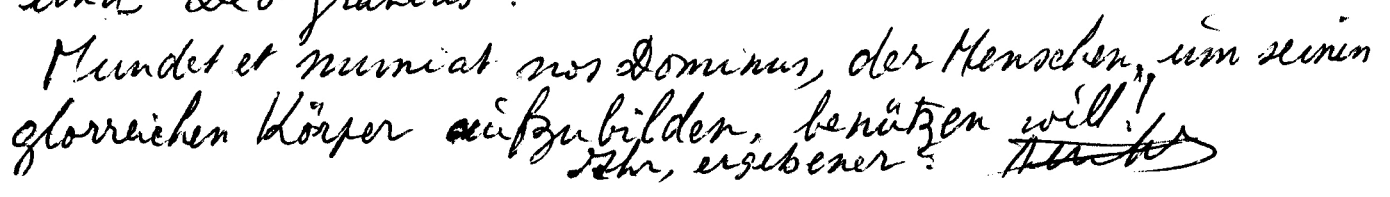 Deo gratias!
Mundet et muniat nos Dominus, der Menschen, um seinen
glorreichen Körper aufzubilden, benützen will!
Ihr, ergebener: